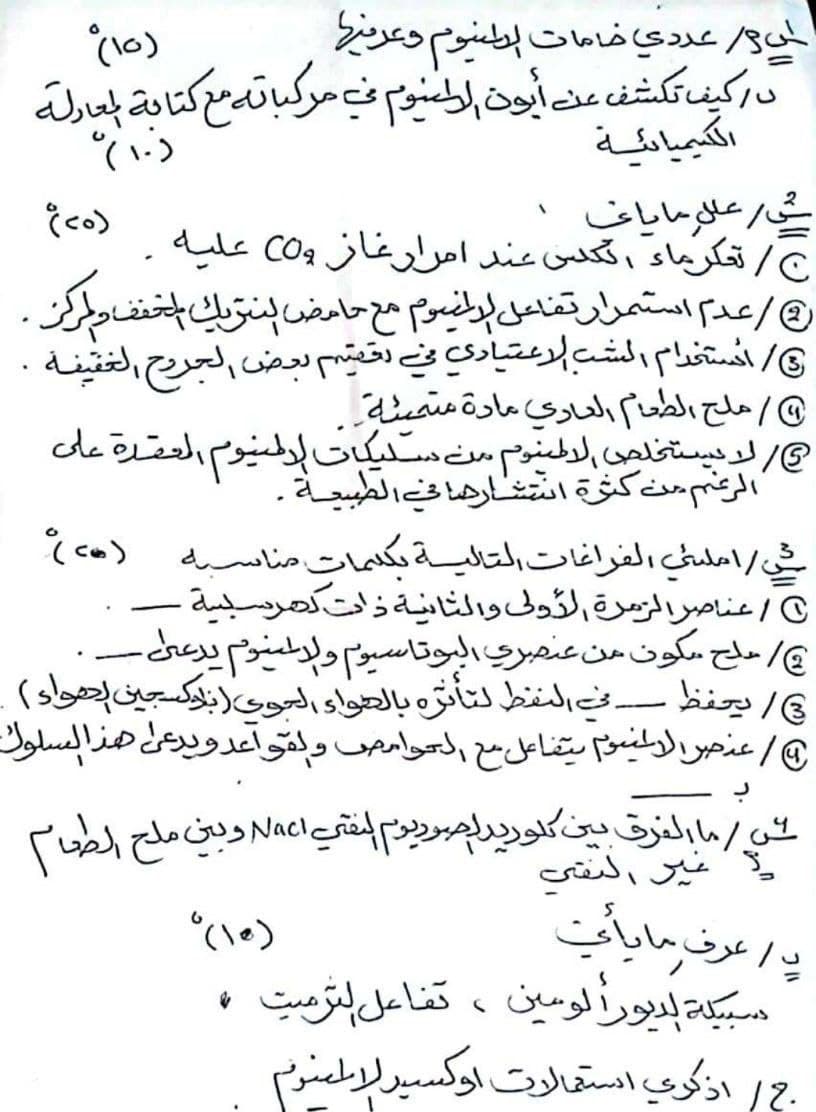 س١ أ/ عددي خامات الالمنيوم وعرفيها (١٥)°
ب/ كيف تكشف عن أيون الالمنيوم في مركباته مع كتابة المعادلة
الكيميائية (١٠)°
س٢/ علل ما ياتي (٢٥)°
①/ تعكر ماء الكلس عند امرار غاز CO2 عليه .
②/ عدم استمرار تفاعل الالمنيوم مع حامض النتريك المخفف والمركز .
③/ أستخدام الشب الاعتيادي في تعقيم بعض الجروح الخفيفة .
④/ ملح الطعام العادي مادة متميئة .
⑤/ لا يستخلص الالمنيوم من سليكات الالمنيوم المعقدة على
الرغم من كثرة انتشارها في الطبيعة .
س٣/ املئي الفراغات التالية بكلمات مناسبه (٢٠)°
①/ عناصر الزمرة الأولى والثانية ذات كهرسلبية ــــ .
②/ ملح مكون من عنصري البوتاسيوم والالمنيوم يدعى ــــ .
③/ يحفظ ــــ في النفط لتأثره بالهواء الجوي (بأوكسجين الهواء) .
④/ عنصر الالمنيوم يتفاعل مع الحوامض والقواعد ويدعى هذا السلوك
بـ ــــــ
س٤/ أ ما الفرق بين كلوريد الصوديوم النقي NaCl وبين ملح الطعام
غير النقي
ب/ عرف ما يأتي (١٥)°
سبيكة الديورألومين ، تفاعل الثرميت .
ج/ اذكري استعمالات اوكسيد الالمنيوم .